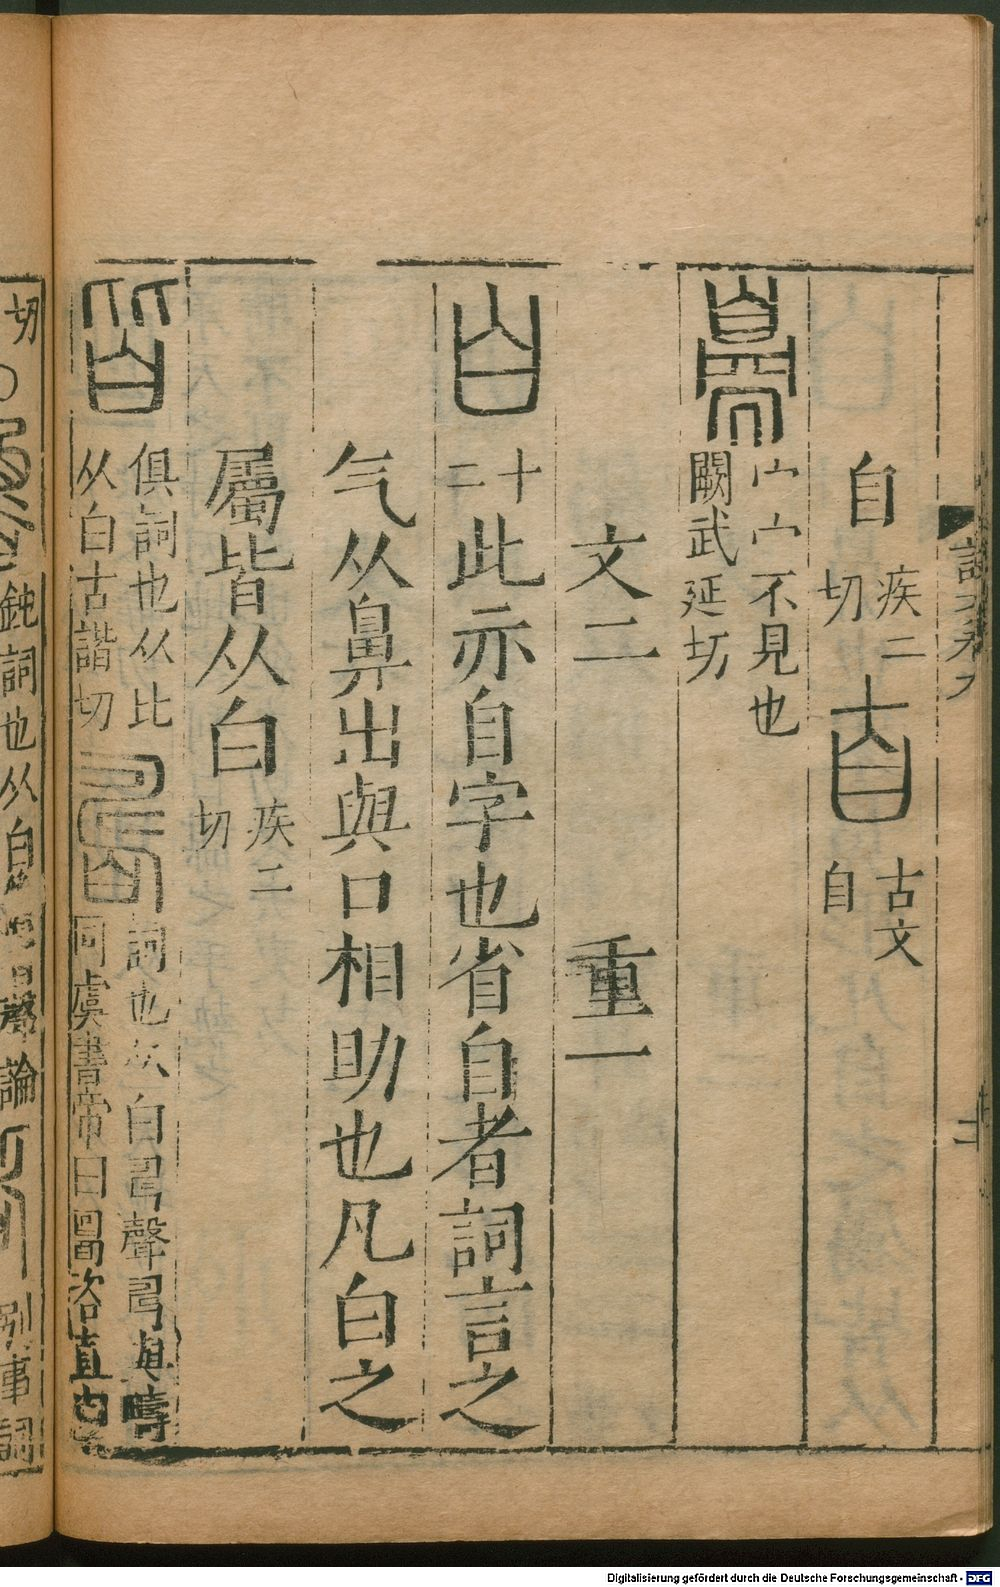 自 疾二切 𦣹 古文自
臱 宀宀不見也
闕武延切
文二 重一
白 十二 此亦自字也省自者詞言之
气从鼻出與口相助也凡白之
屬皆从白 疾二切
皆 俱詞也从比
从白古諧切
詞也从白𠃬聲𠃬與疇
同虞書帝曰𠷎咨直由
切
鈍詞也从白
聲論
別事詞
Digitalisierung gefördert durch die Deutsche Forschungsgemeinschaft - DFG